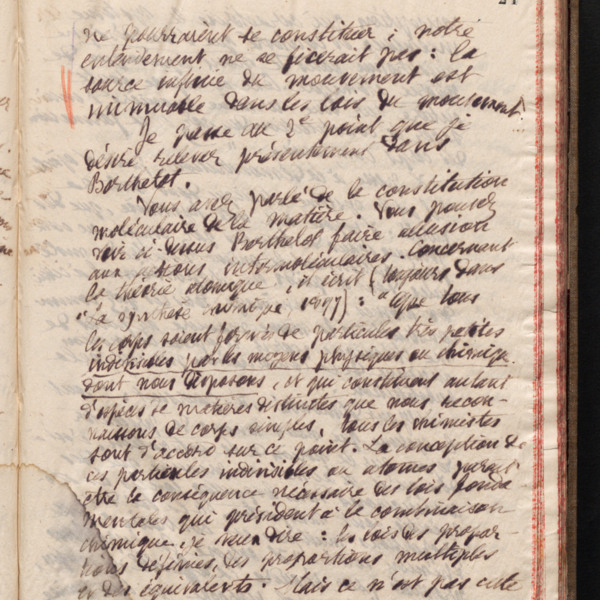 ne pourraient se constituer ; notre
entendement ne se ficerait pas : la
source infime du mouvement est
immuable dans les lois du mouvement.
Je passe au 2e point que je
désire relever présentement dans
Berthelot.
Vous avez parlé de la constitution
moléculaire de la matière. Vous pouvez
voir ci-dessus Berthelot faire allusion
aux actions intermoléculaires. Concernant
la théorie atomique, il écrit (toujours dans
"La synthèse chimique, 1897) : "Que tous
les corps soient formés de particules très petites
indivisibles par les moyens physiques ou chimiq.
dont nous disposons, et qui constituent autant
d'espèces de matières distinctes que nous recon-
naissons de corps simples, tous les chimistes
sont d'accord sur ce point. La conception de
ces particules indivisibles ou atomes paraît
être la conséquence nécessaire des lois fonda
mentales qui président à la combinaison
chimique, je veux dire : les lois des propor-
tions définies, des proportions multiples
et des équivalents. Mais ce n'est pas cette